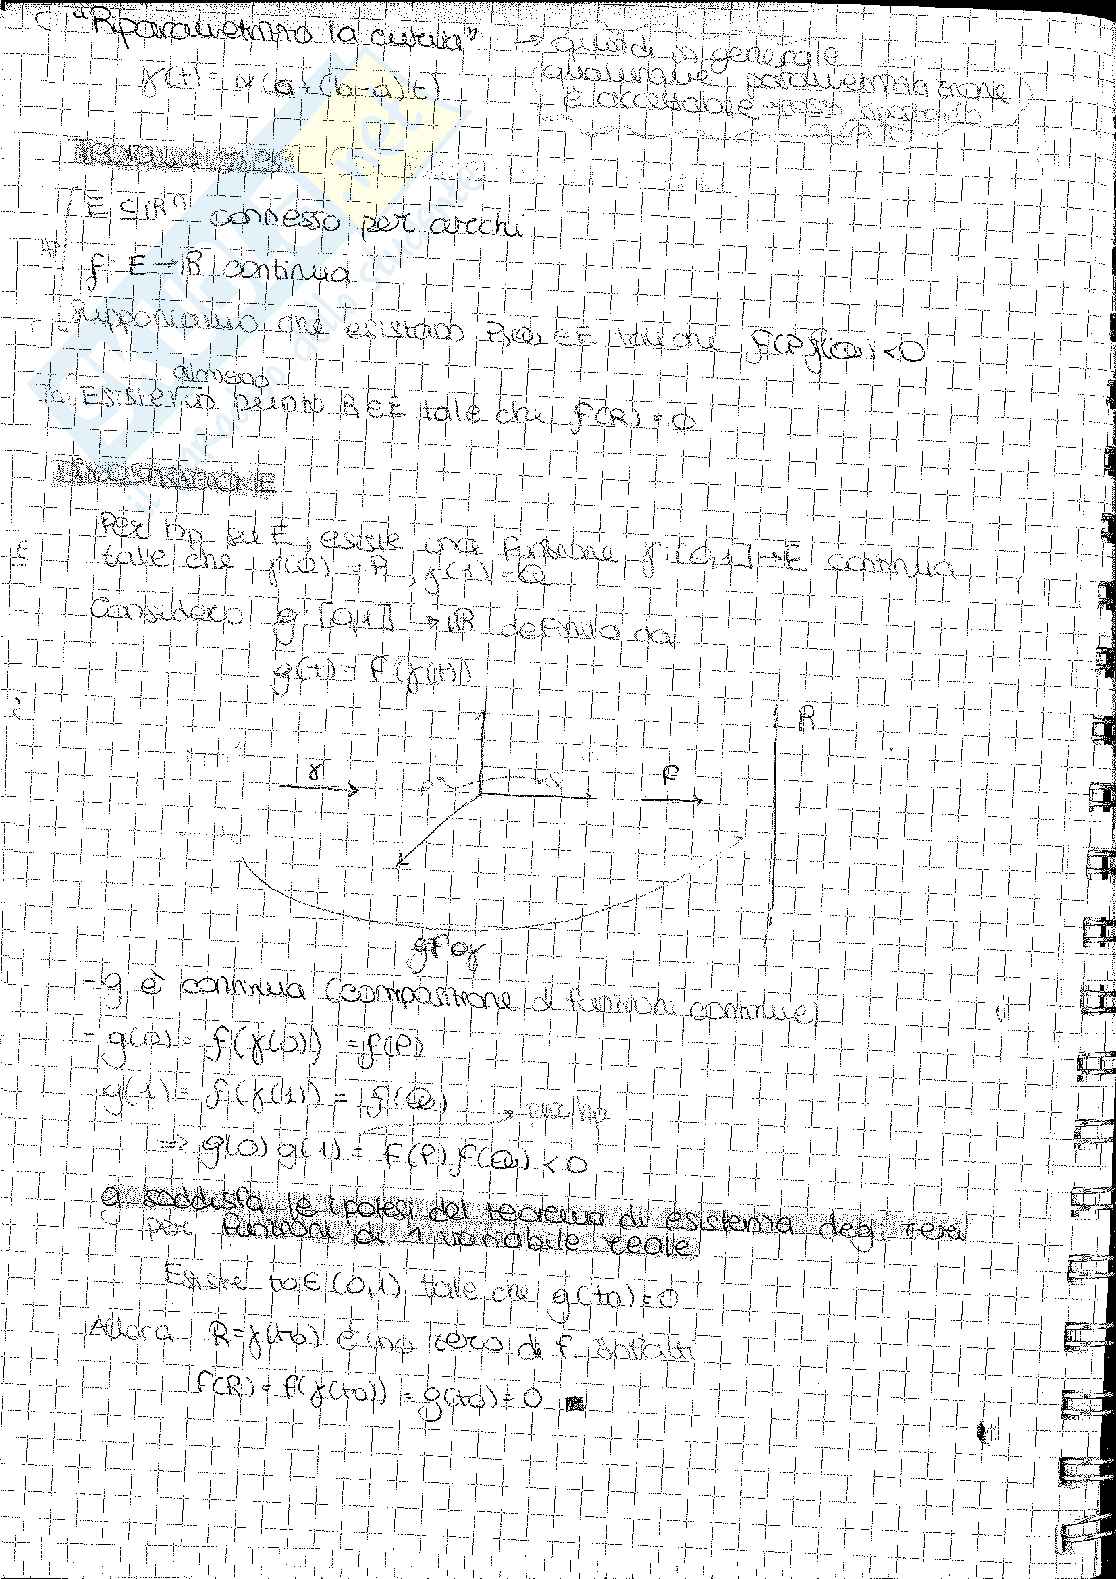 "Riparametrizzo la curva" → quindi in generale
γ(t) = r(a+(b-a)t) qualunque parametrizzazione
è accettabile
E ⊆ ℝⁿ connesso per archi
Hp f: E → ℝ continua
Supponiamo che esistano P, Q ∈ E tale che f(P)f(Q) < 0
almeno
Ts Esiste un punto R ∈ E tale che f(R) = 0
DIMOSTRAZIONE
Per Hp su E, esiste una funzione γ: [0,1] → E continua
tale che γ(0) = P, γ(1) = Q
Considero g: [0,1] → ℝ definita da
g(t) = f(γ(t))
R
γ
f
g f∘γ
- g è continua (composizione di funzioni continue)
- g(0) = f(γ(0)) = f(P)
g(1) = f(γ(1)) = f(Q) → per Hp
⇒ g(0) g(1) = f(P) f(Q) < 0
g soddisfa le ipotesi del teorema di esistenza degli zeri
per funzioni di 1 variabile reale
Esiste t0 ∈ (0,1) tale che g(t0) = 0
Allora R = γ(t0) è uno zero di f. Infatti
f(R) = f(γ(t0)) = g(t0) = 0 ■